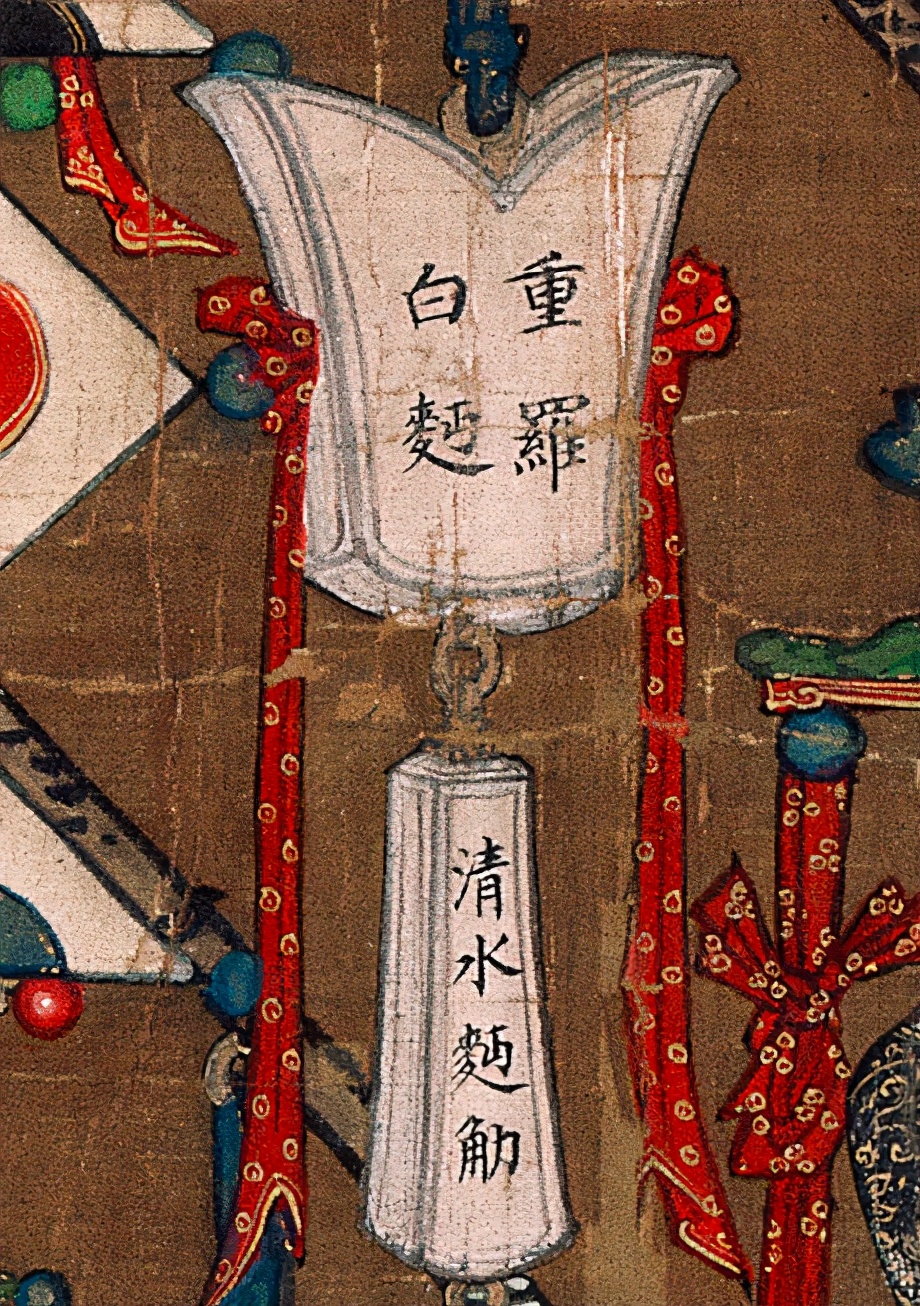 重羅
白麪
清水麵觔